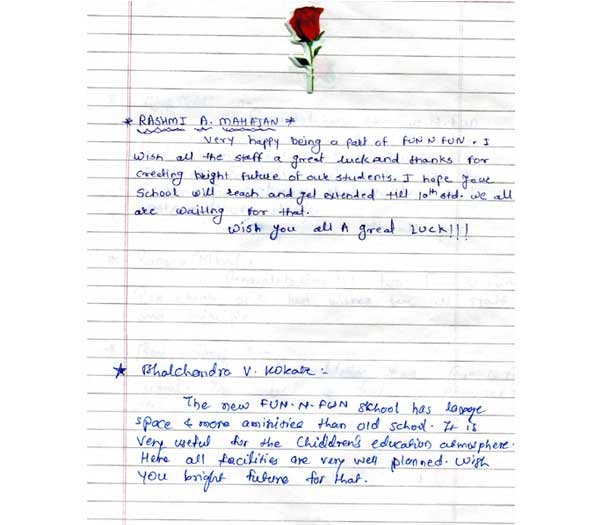 * RASHMI A. MAHAJAN *
Very happy being a part of FUN N FUN. I
wish all the staff a great luck and thanks for
creating bright future of our students. I hope your
School will reach and get extended till 10th std. we all
are waiting for that.
Wish you all A great Luck!!!
* Bhalchandra V. Kokate :-
The new FUN-N-FUN School has large
space & more aminities than old school. It is
very useful for the Children's education atmosphere.
Here all facilities are very well planned. Wish
you bright future for that.